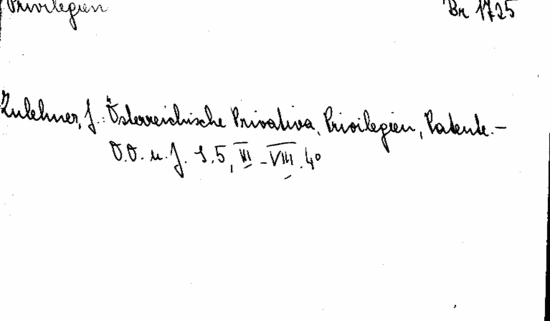 Privilegien Br 1725
Zulehner, J.: Österreichische Privativa, Privilegien, Patente.—
O.O. u. J. S. 5, VI - VIII. 4°